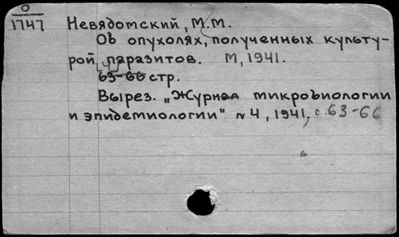 О
1747 Невядомский, М.М.
Об опухолях, полученных культу-
рой паразитов. М, 1941.
63-66 стр.
Вырез. „Журнал микробиологии
и эпидемиологии" № 4, 1941, с 63-66